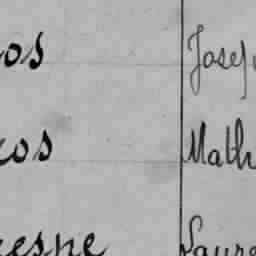 os Josep
cos Math
esne Laure